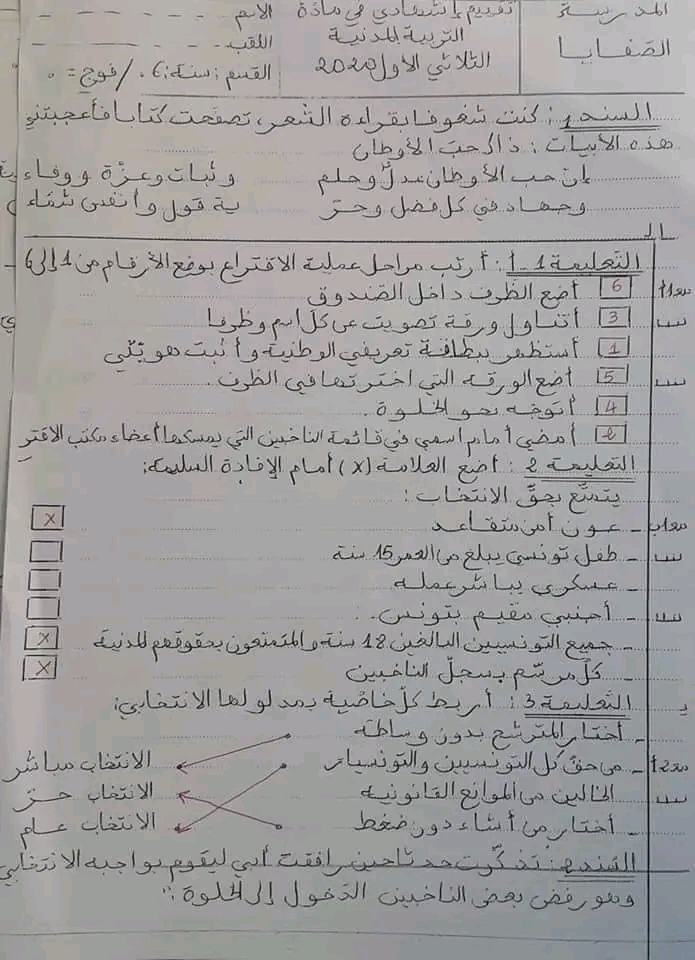 المدرسة
الصفايا
تقييم إشهادي في مادة
التربية المدنية
الثلاثي الأول 2020
الاسم
اللقب
القسم: سنة: 6 / فوج = .
السند 1: كنت شغوفا بقراءة الشعر، تصفحت كتابا فأعجبتني
هذه الأبيات: ذاك حب الأوطان
إن حب الأوطان عدل وحلم وثبات وعزة ووفاء
وجهاد في كل فضل وحر ية قول وأنفس شماء
التعليمة 1 - أ: أرتب مراحل عملية الاقتراع بوضع الأرقام من 1 إلى 6
6 أضع الظرف داخل الصندوق
3 أتناول ورقة تصويت عن كل اسم وظرفا
1 أستظهر ببطاقة تعريفي الوطنية وأثبت هويتي
5 أضع الورقة التي اخترتها في الظرف.
4 أتوجه نحو الخلوة.
2 أمضي أمام اسمي في قائمة الناخبين التي يمسكها أعضاء مكتب الاقتر
التعليمة 2: أضع العلامة (x) أمام الإفادة السليمة:
يتمتع بحق الانتخاب:
مع1ب - عون أمن متقاعد x
- طفل تونسي يبلغ من العمر 15 سنة
- عسكري يباشر عمله
- أجنبي مقيم بتونس.
- جميع التونسيين البالغين 18 سنة والمتمتعون بحقوقهم المدنية x
- كل مرسم بسجل الناخبين x
التعليمة 3: أربط كل خاصية بمدلولها الانتخابي:
- أختار المترشح بدون وساطة
مع2أ - من حق كل التونسيين والتونسيات الانتخاب مباشر
الخالين من الموانع القانونية الانتخاب حر
- أختار من أشاء دون ضغط الانتخاب عام
السند 2: تذكرت حدثا حين رافقت أبي ليقوم بواجبه الانتخابي
وهو رفض بعض الناخبين الدخول إلى الخلوة: